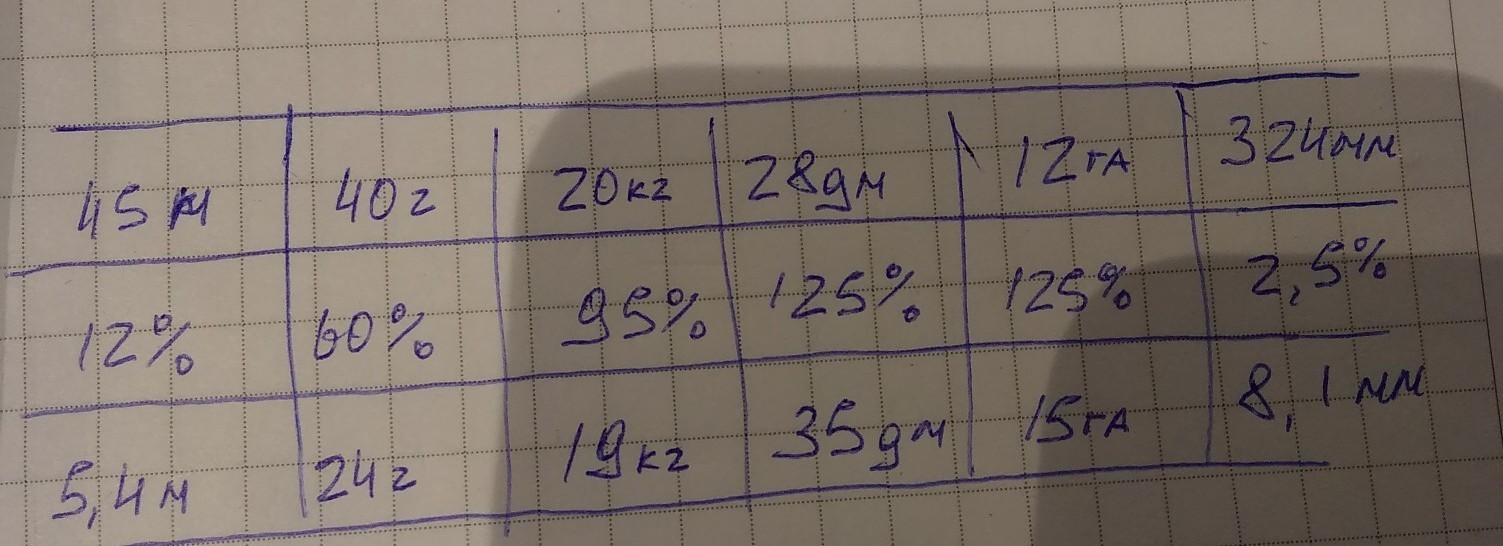 45м 40г 20кг 28дм 12га 324мм
12% 60% 95% 125% 125% 2,5%
5,4м 24г 19кг 35дм 15га 8,1мм